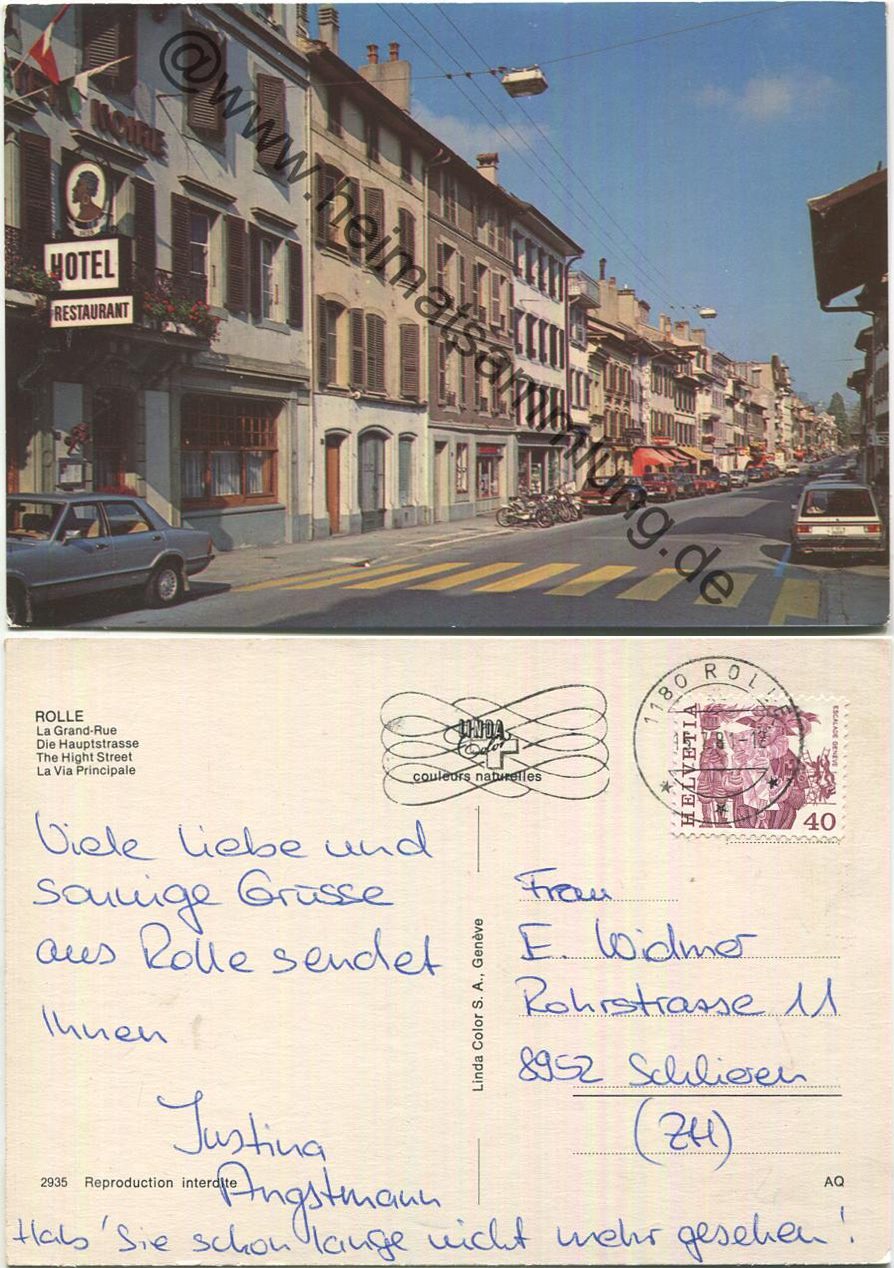 NOIRE
HOTEL
RESTAURANT
@www.heimatsammlung.de
ROLLE
La Grand-Rue
Die Hauptstrasse
The Hight Street
La Via Principale
LINDA
Color
couleurs naturelles
1180 ROLLE
HELVETIA
ESCALADE GENÈVE
40
Viele liebe und
sonnige Grüsse
aus Rolle sendet
Ihnen
Justina
Angstmann
Hab' Sie schon lange nicht mehr gesehen!
Linda Color S.A., Genève
Frau
E. Widmer
Rohrstrasse 11
8952 Schlieren
(ZH)
2935 Reproduction interdite
AQ